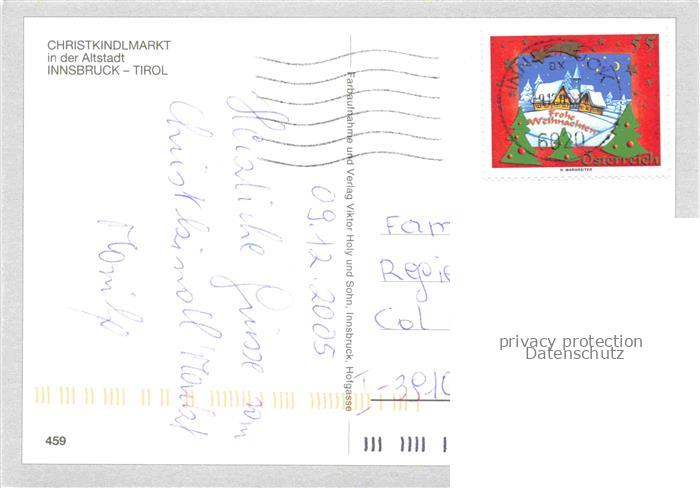 CHRISTKINDLMARKT
in der Altstadt
INNSBRUCK – TIROL
55
Frohe
Weihnachten
6020
Österreich
H. MARGREITER
Farbaufnahme und Verlag Viktor Holy und Sohn, Innsbruck, Hofgasse
09.12.2005
Herzliche Grüsse vom
Christkindl Markt
Fam
Regie
Col
I-3910
privacy protection
Datenschutz
459